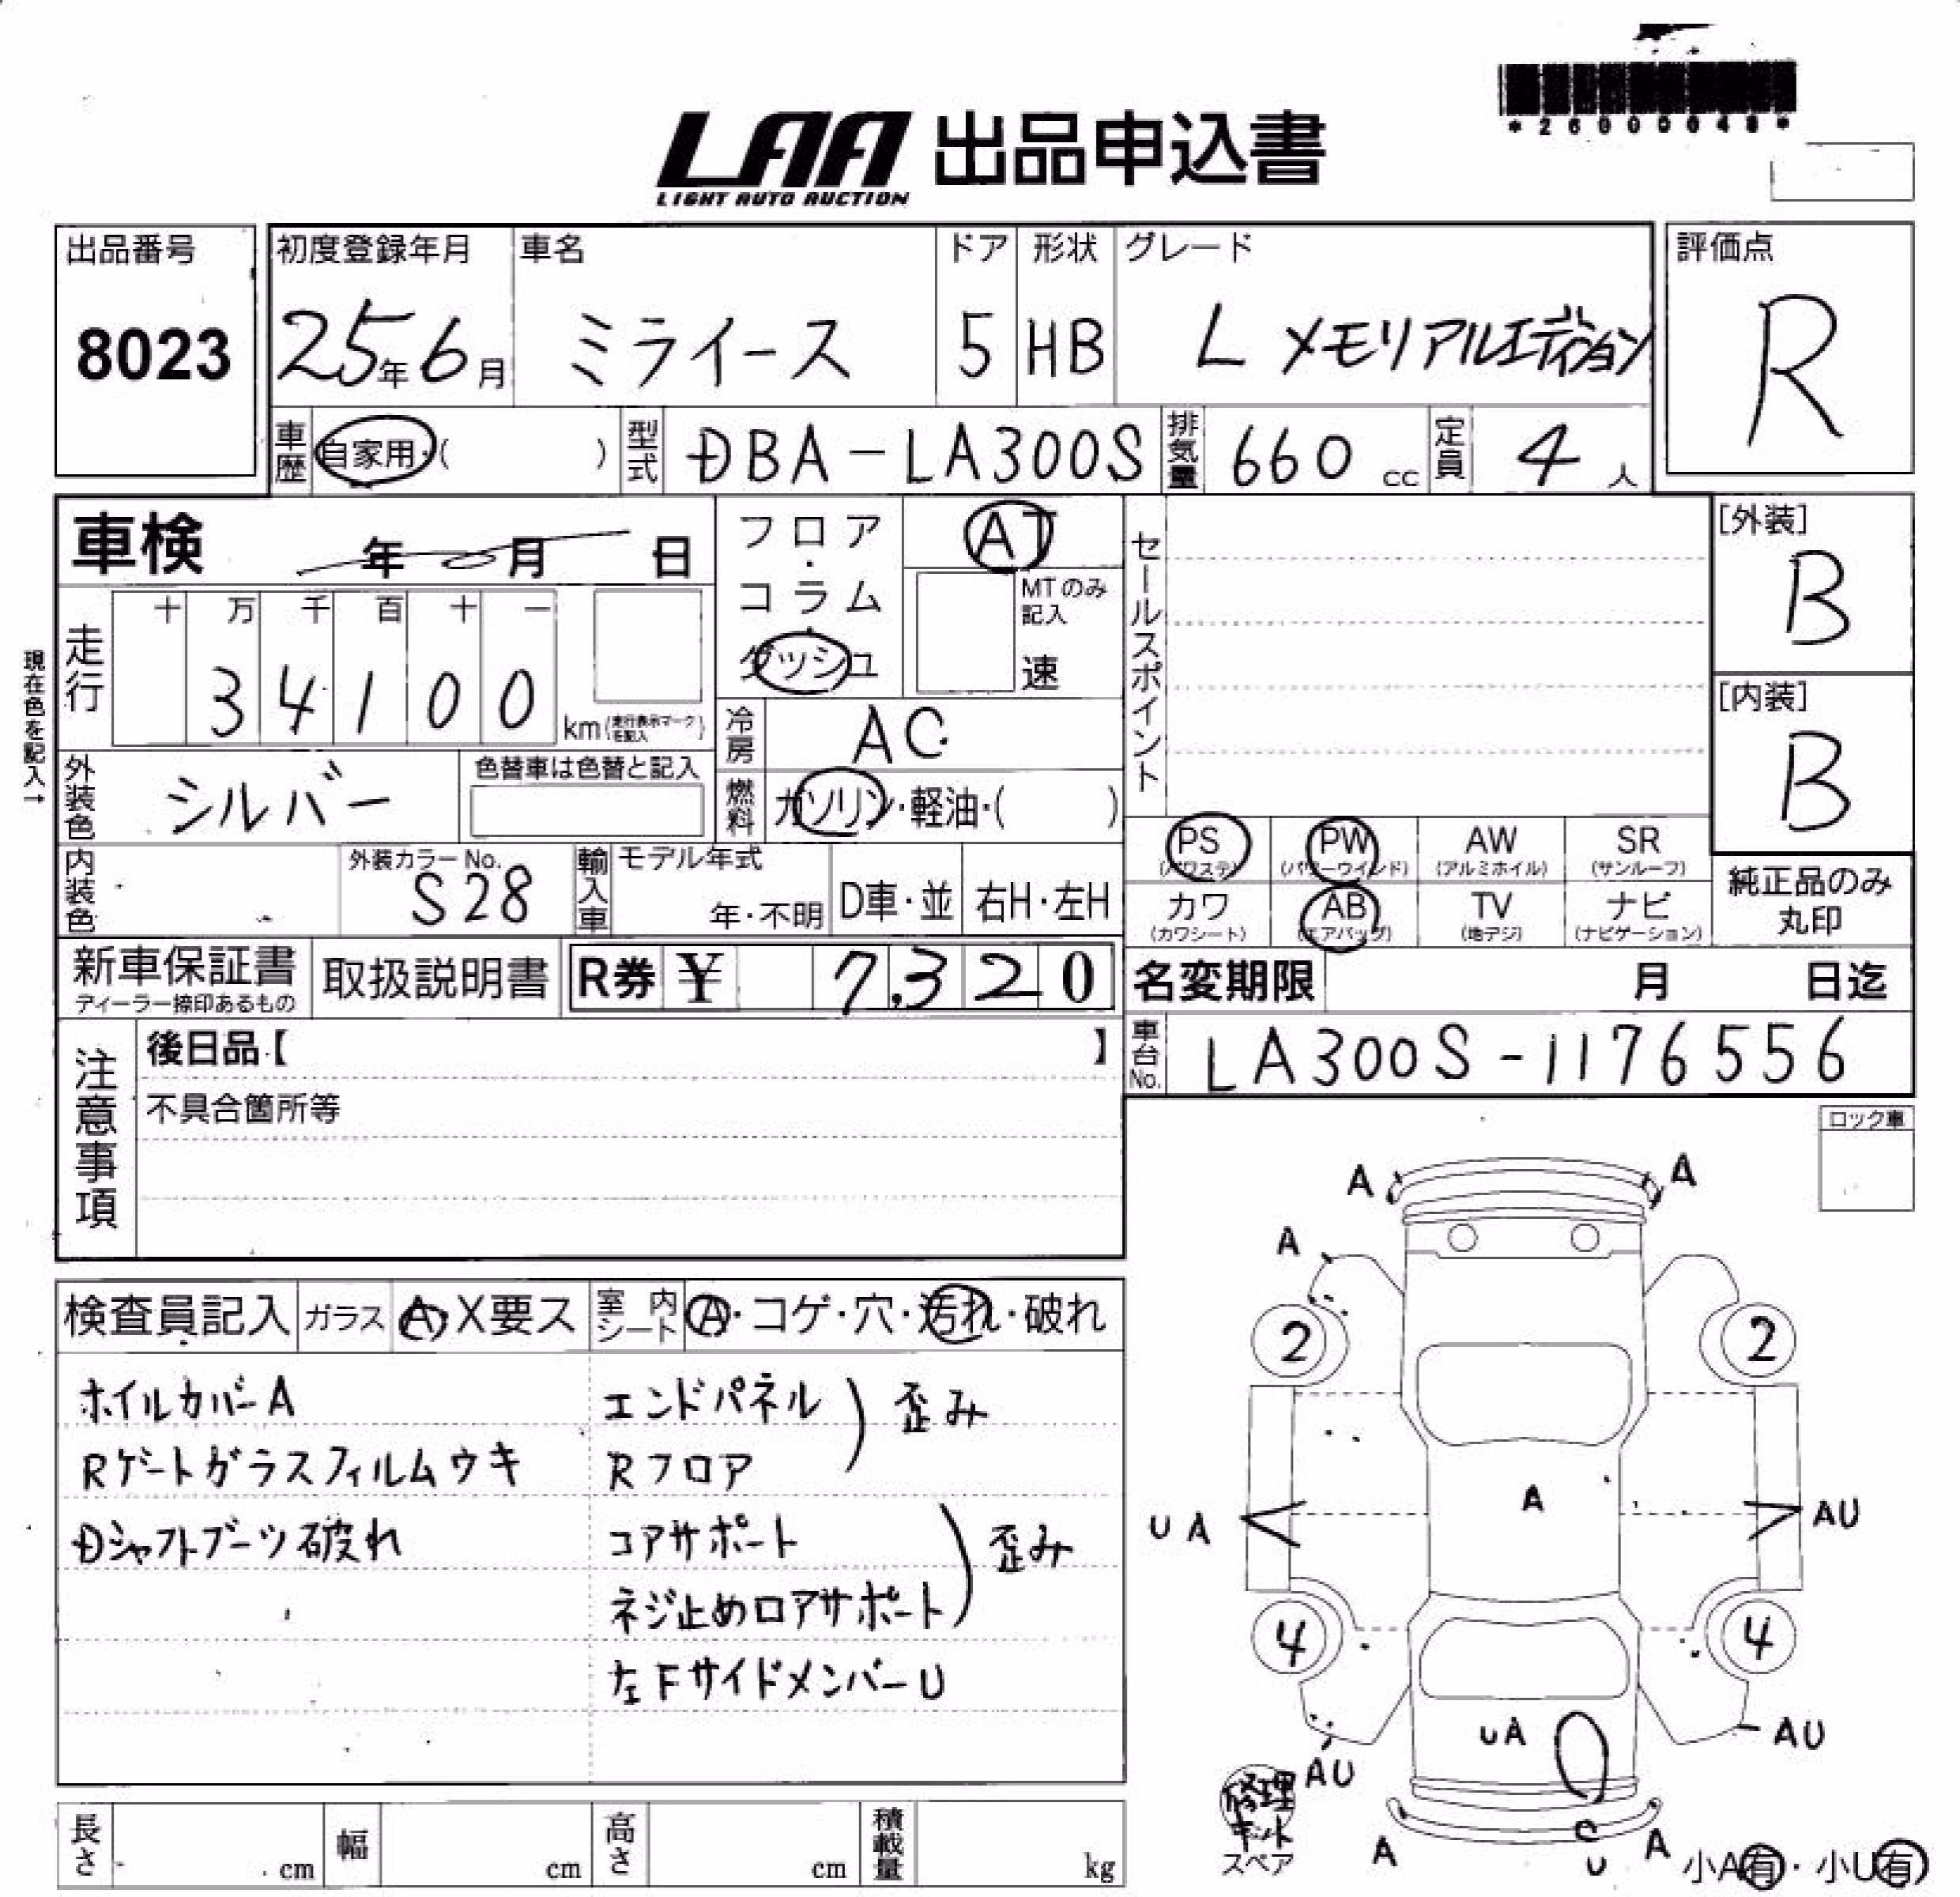 *26000048*
LAA 出品申込書
LIGHT AUTO AUCTION
出品番号
8023
初度登録年月
25年6月
車名
ミライース
ドア
5
形状
HB
グレード
L メモリアルエディション
評価点
R
車歴
自家用・( )
型式
DBA-LA300S
排気量
660 cc
定員
4 人
車検 年 月 日
フロア・コラム・ダッシュ
AT
MTのみ記入
速
セールスポイント
[外装]
B
[内装]
B
現在色を記入→
走行
十 万 千 百 十 一
3 4 1 0 0
km(走行表示マークを記入)
冷房
AC
外装色
シルバー
色替車は色替と記入
燃料
ガソリン・軽油・( )
内装色
外装カラーNo.
S28
輸入車
モデル年式
年・不明
D車・並
右H・左H
PS
(パワステ)
PW
(パワーウインド)
AW
(アルミホイル)
SR
(サンルーフ)
カワ
(カワシート)
AB
(エアバッグ)
TV
(地デジ)
ナビ
(ナビゲーション)
純正品のみ
丸印
新車保証書
ディーラー捺印あるもの
取扱説明書
R券 ¥ 7,320
名変期限 月 日迄
注意事項
後日品【 】
不具合箇所等
車台No.
LA300S-1176556
ロック車
検査員記入
ガラス
A・X要ス
室内シート
A・コゲ・穴・汚れ・破れ
ホイルカバーA
Rゲートガラスフィルムウキ
Dシャフトブーツ破れ
エンドパネル
Rフロア
歪み
コアサポート
ネジ止めロアサポート
歪み
左FサイドメンバーU
A
A
A
2
2
UA
A
AU
4
4
UA
AU
AU
修理キット
スペア
A
C
U
A
小A有・小U有
長さ cm
幅 cm
高さ cm
積載量 kg